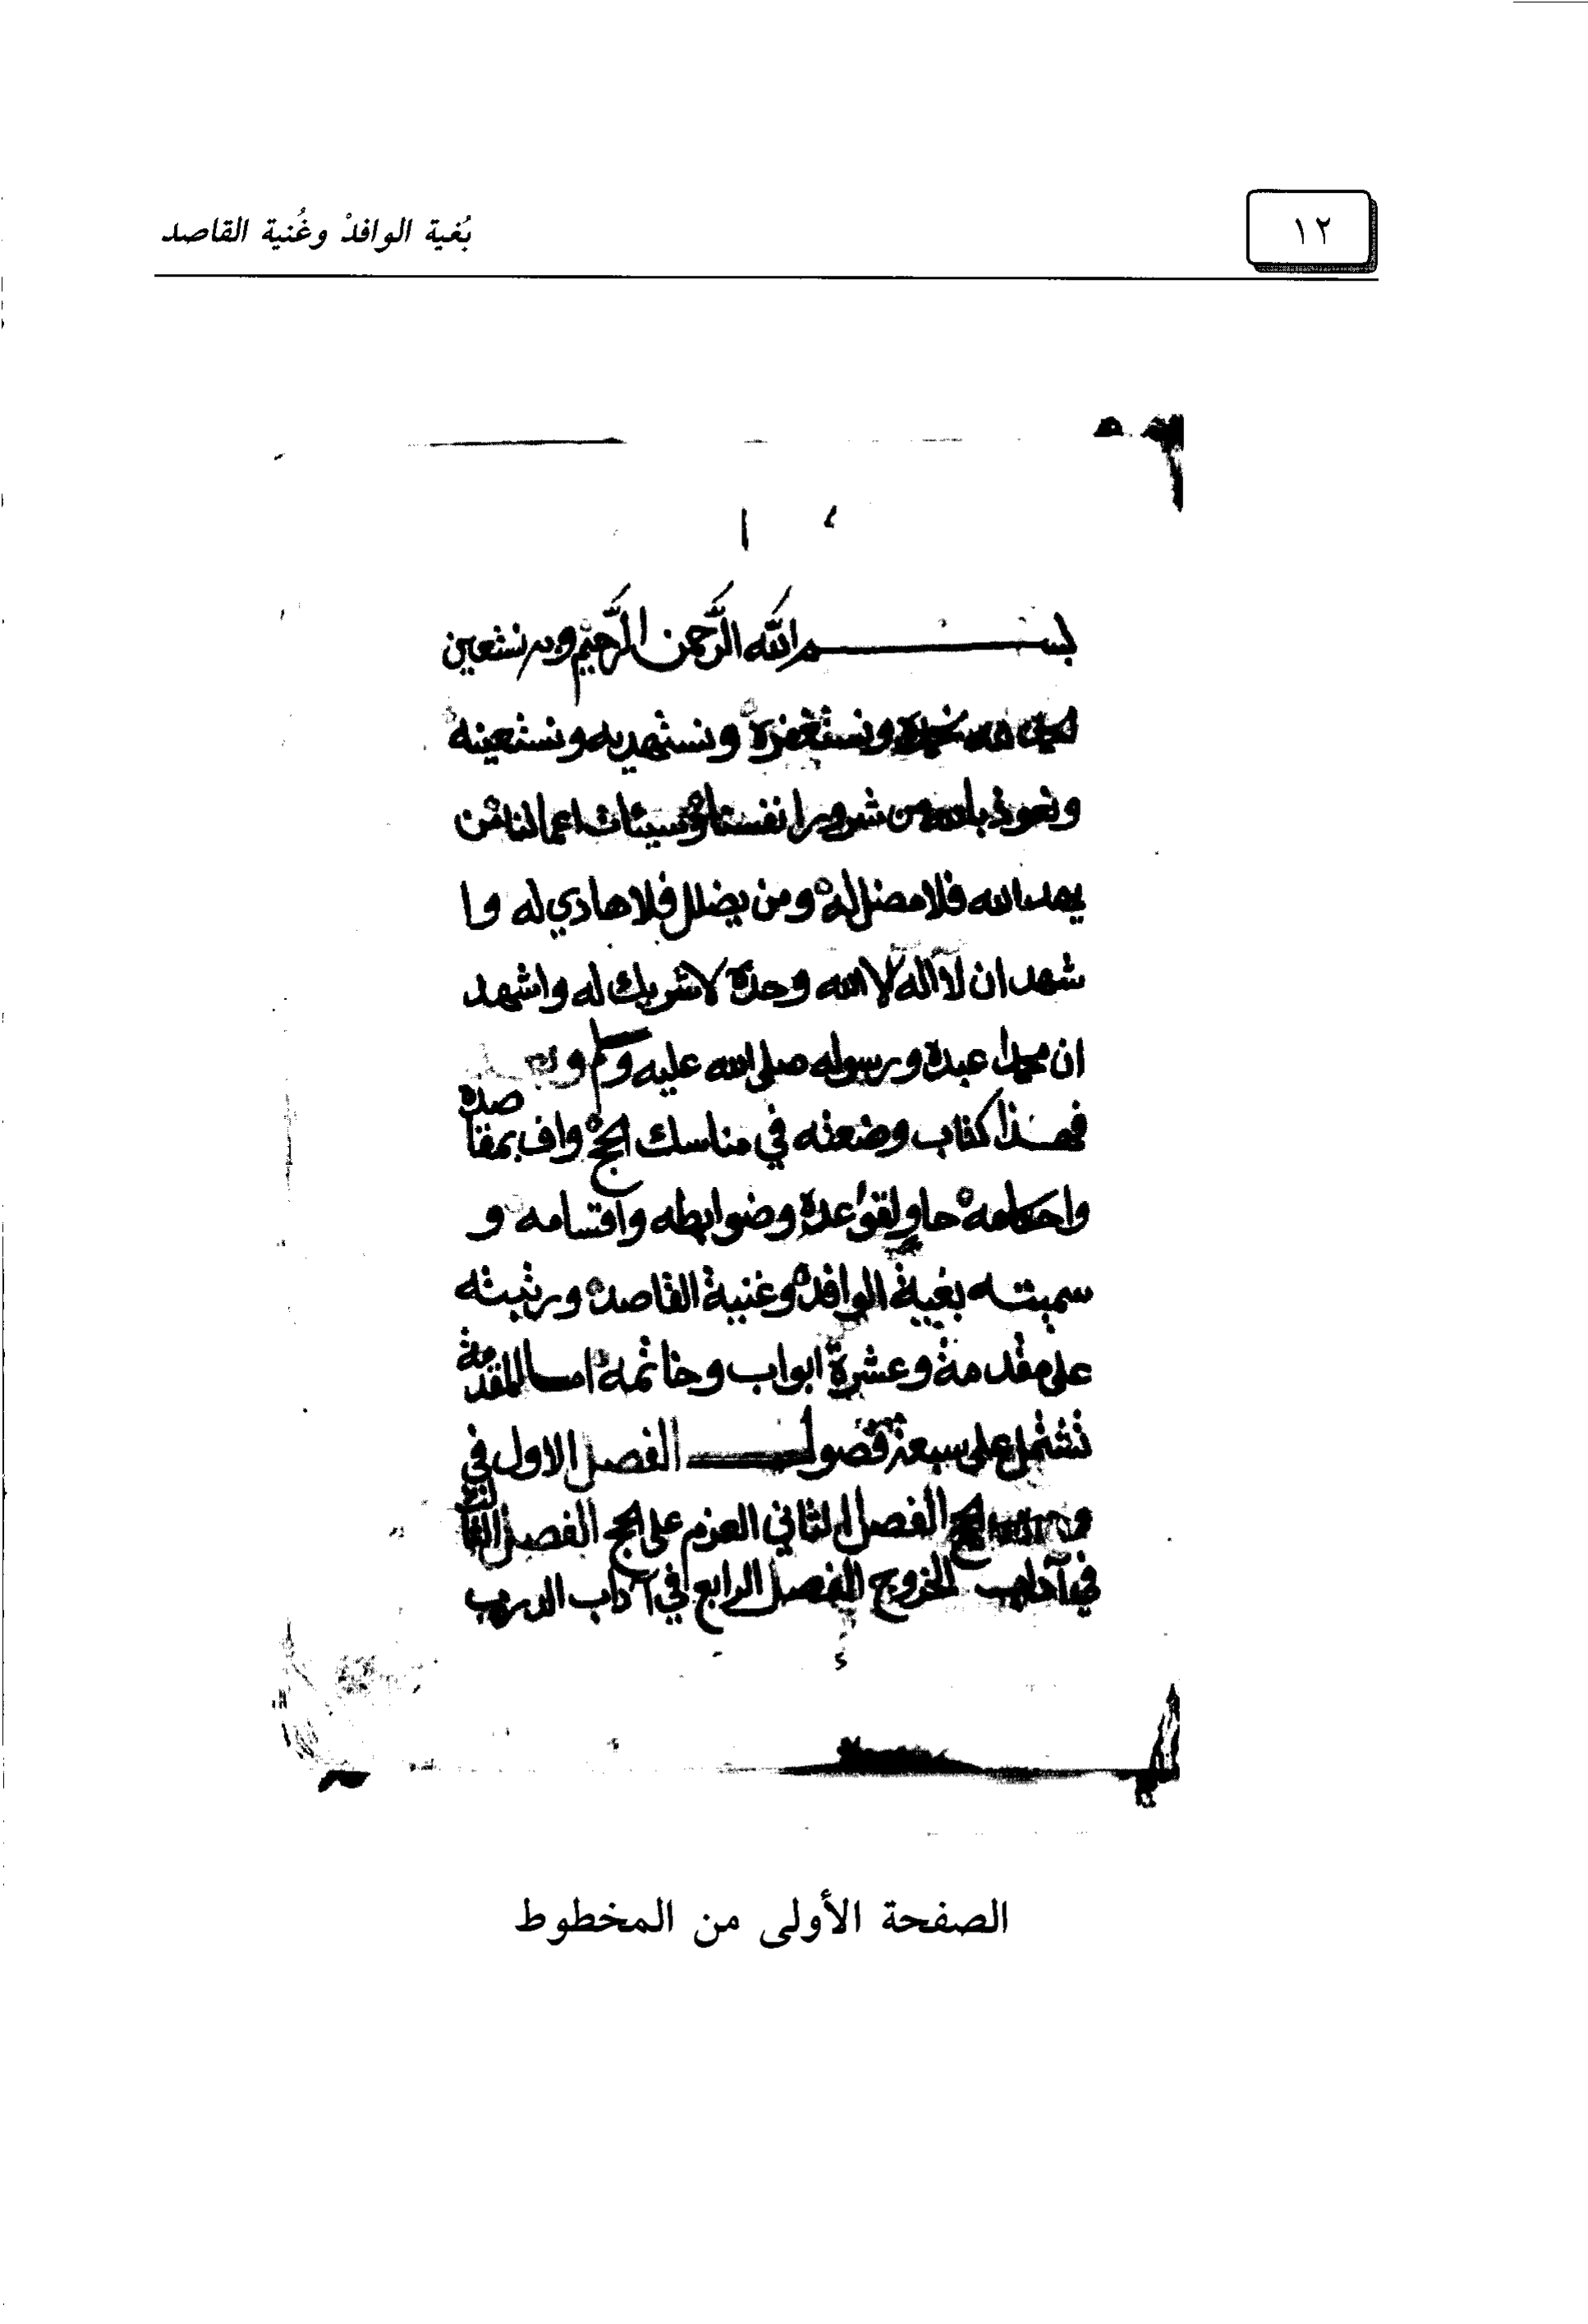 ١٢
بُغية الوافدْ وغُنية القاصد
بسم الله الرَّحمن الرَّحيم وبه نستعين
نحمده ونستغفره ونستهديه ونستعينه
ونعوذ بالله من شرور انفسنا وسيئات اعمالنا من
يهد الله فلا مضل له ومن يضلل فلا هادي له وا
شهد ان لا اله الا الله وحده لا شريك له واشهد
ان محمدا عبده ورسوله صلى الله عليه وسلم
فهذا كتاب وضعته في مناسك الحج واف بمقاصده
واحكامه حاو لقواعده وضوابطه واقسامه و
سميته بغية الوافد وغنية القاصد ورتبته
على مقدمة وعشرة ابواب وخاتمة اما المقدمة
تشتمل على سبعة فصول الفصل الاول في
الحج الفصل الثاني العزم على الحج الفصل الثالث
في آداب الخروج الفصل الرابع في آداب الدرب
الصفحة الأولى من المخطوط